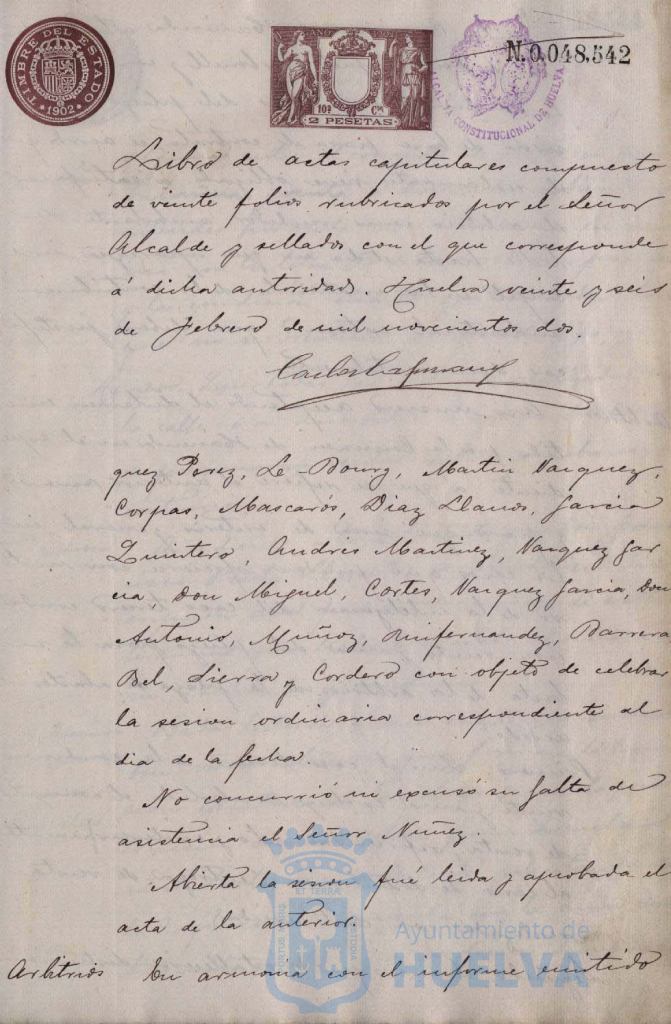 TIMBRE DEL ESTADO
1902
10ª Cas
2 PESETAS
N.0.048.542
ALCALDIA CONSTITUCIONAL DE HUELVA
Libro de actas capitulares compuesto
de veinte folios rubricados por el Señor
Alcalde y sellados con el que corresponde
á dicha autoridad. Huelva veinte y seis
de Febrero de mil novecientos dos.
quez Perez, Le-Bourg, Martin Vazquez,
Corpas, Mascarós, Diaz Llanos, Garcia
Quintero, Andres Martinez, Vazquez Gar
cia, Don Miguel, Cortes, Vazquez Garcia, Don
Antonio, Muñoz, Quifernandez, Barrera
Bel, Sierra y Cordero con objeto de celebrar
la sesion ordinaria correspondiente al
dia de la fecha.
No concurrió ni excusó su falta de
asistencia el Señor Nuñez.
Abierta la sesion fué leida y aprobada el
acta de la anterior.
Ayuntamiento de
HUELVA
Arbitrios En armonia con el informe emitido